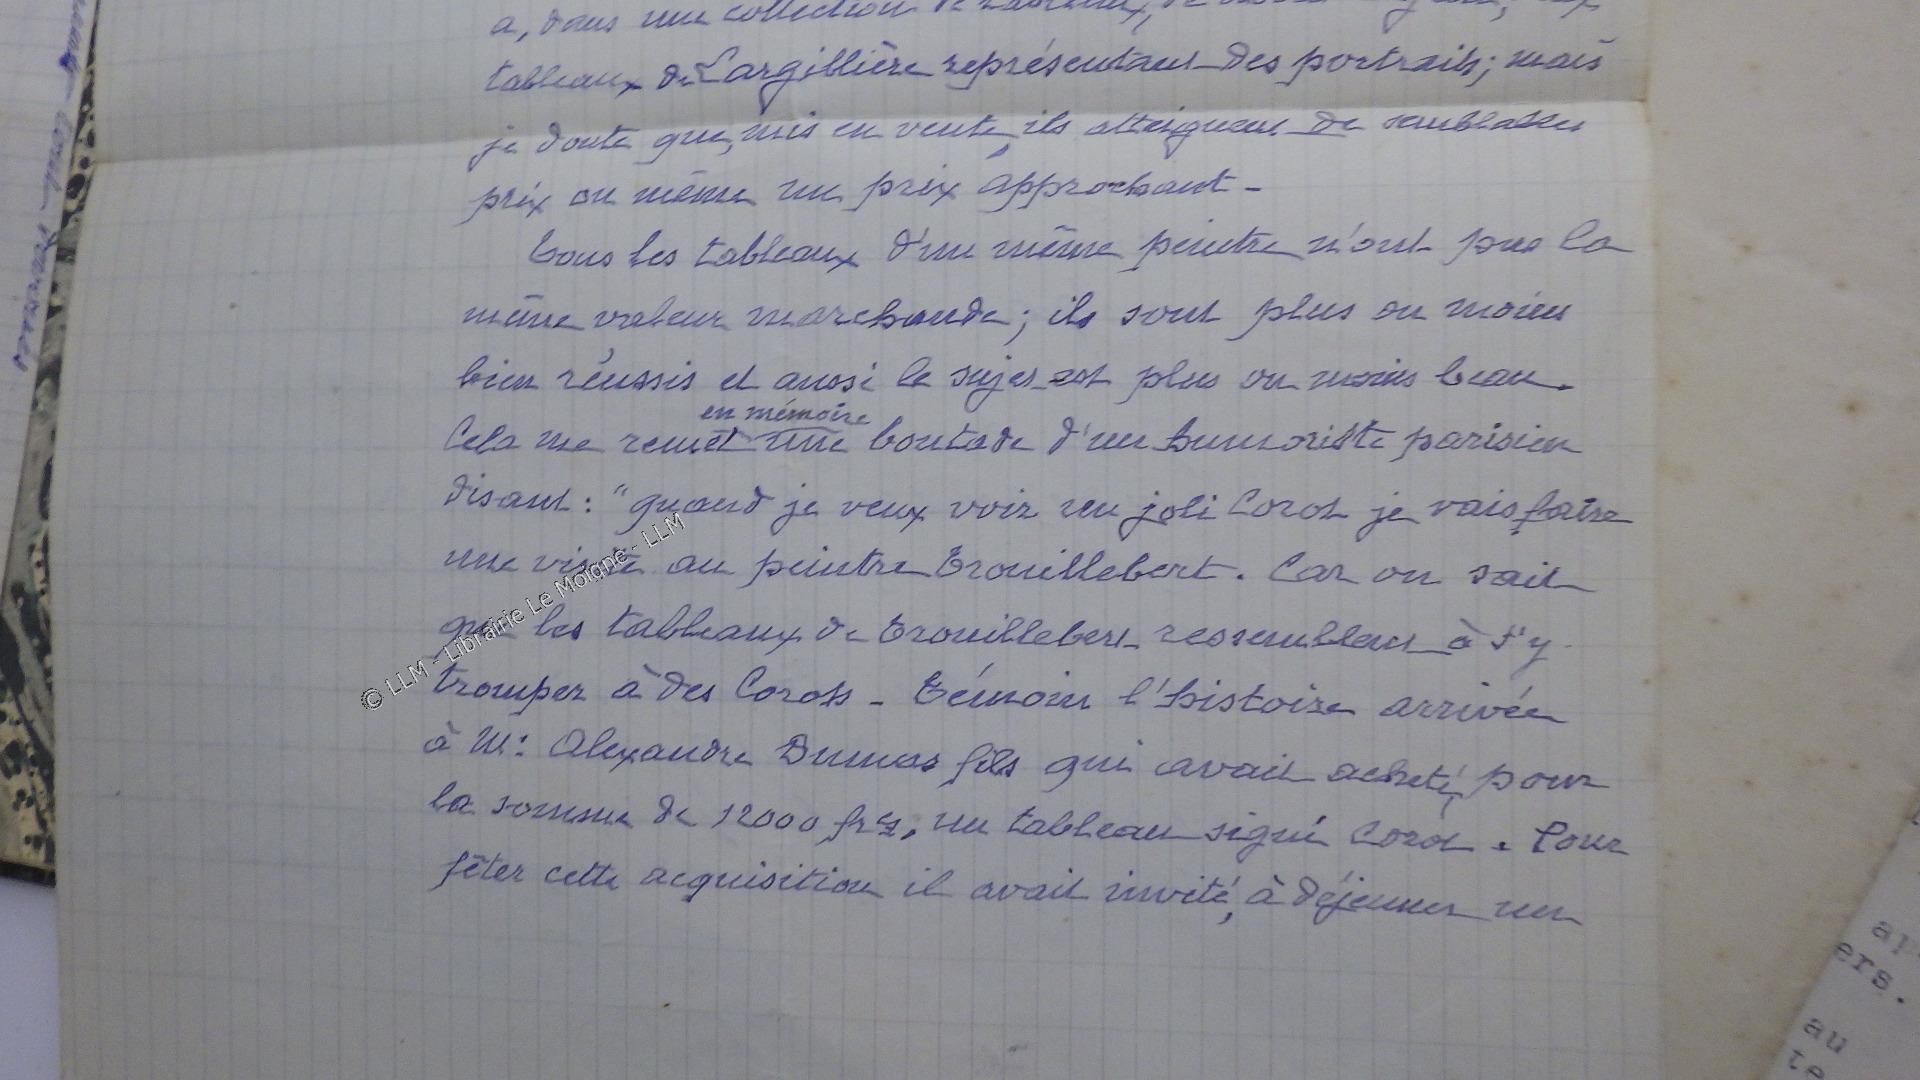 a, dans une collection de tableaux, de
tableaux de Largillière représentant des portraits; mais
je doute que, mis en vente, ils atteignent de semblables
prix ou même un prix approchant -
Tous les tableaux d'un même peintre n'ont pas la
même valeur marchande; ils sont plus ou moins
bien réussis et aussi le sujet est plus ou moins beau.
en mémoire
Cela me remet une boutade d'un humoriste parisien
disant: "quand je veux voir un joli Corot je vais faire
une visite au peintre Trouillebert. Car on sait
que les tableaux de Trouillebert ressemblent à s'y
tromper à des Corots - Témoin l'histoire arrivée
à Mr: Alexandre Dumas fils qui avait acheté, pour
la somme de 12000 frs, un tableau signé Corot. Pour
fêter cette acquisition il avait invité, à déjeuner un
© LLM - Librairie Le Moigne - LLM
ers.
au
te